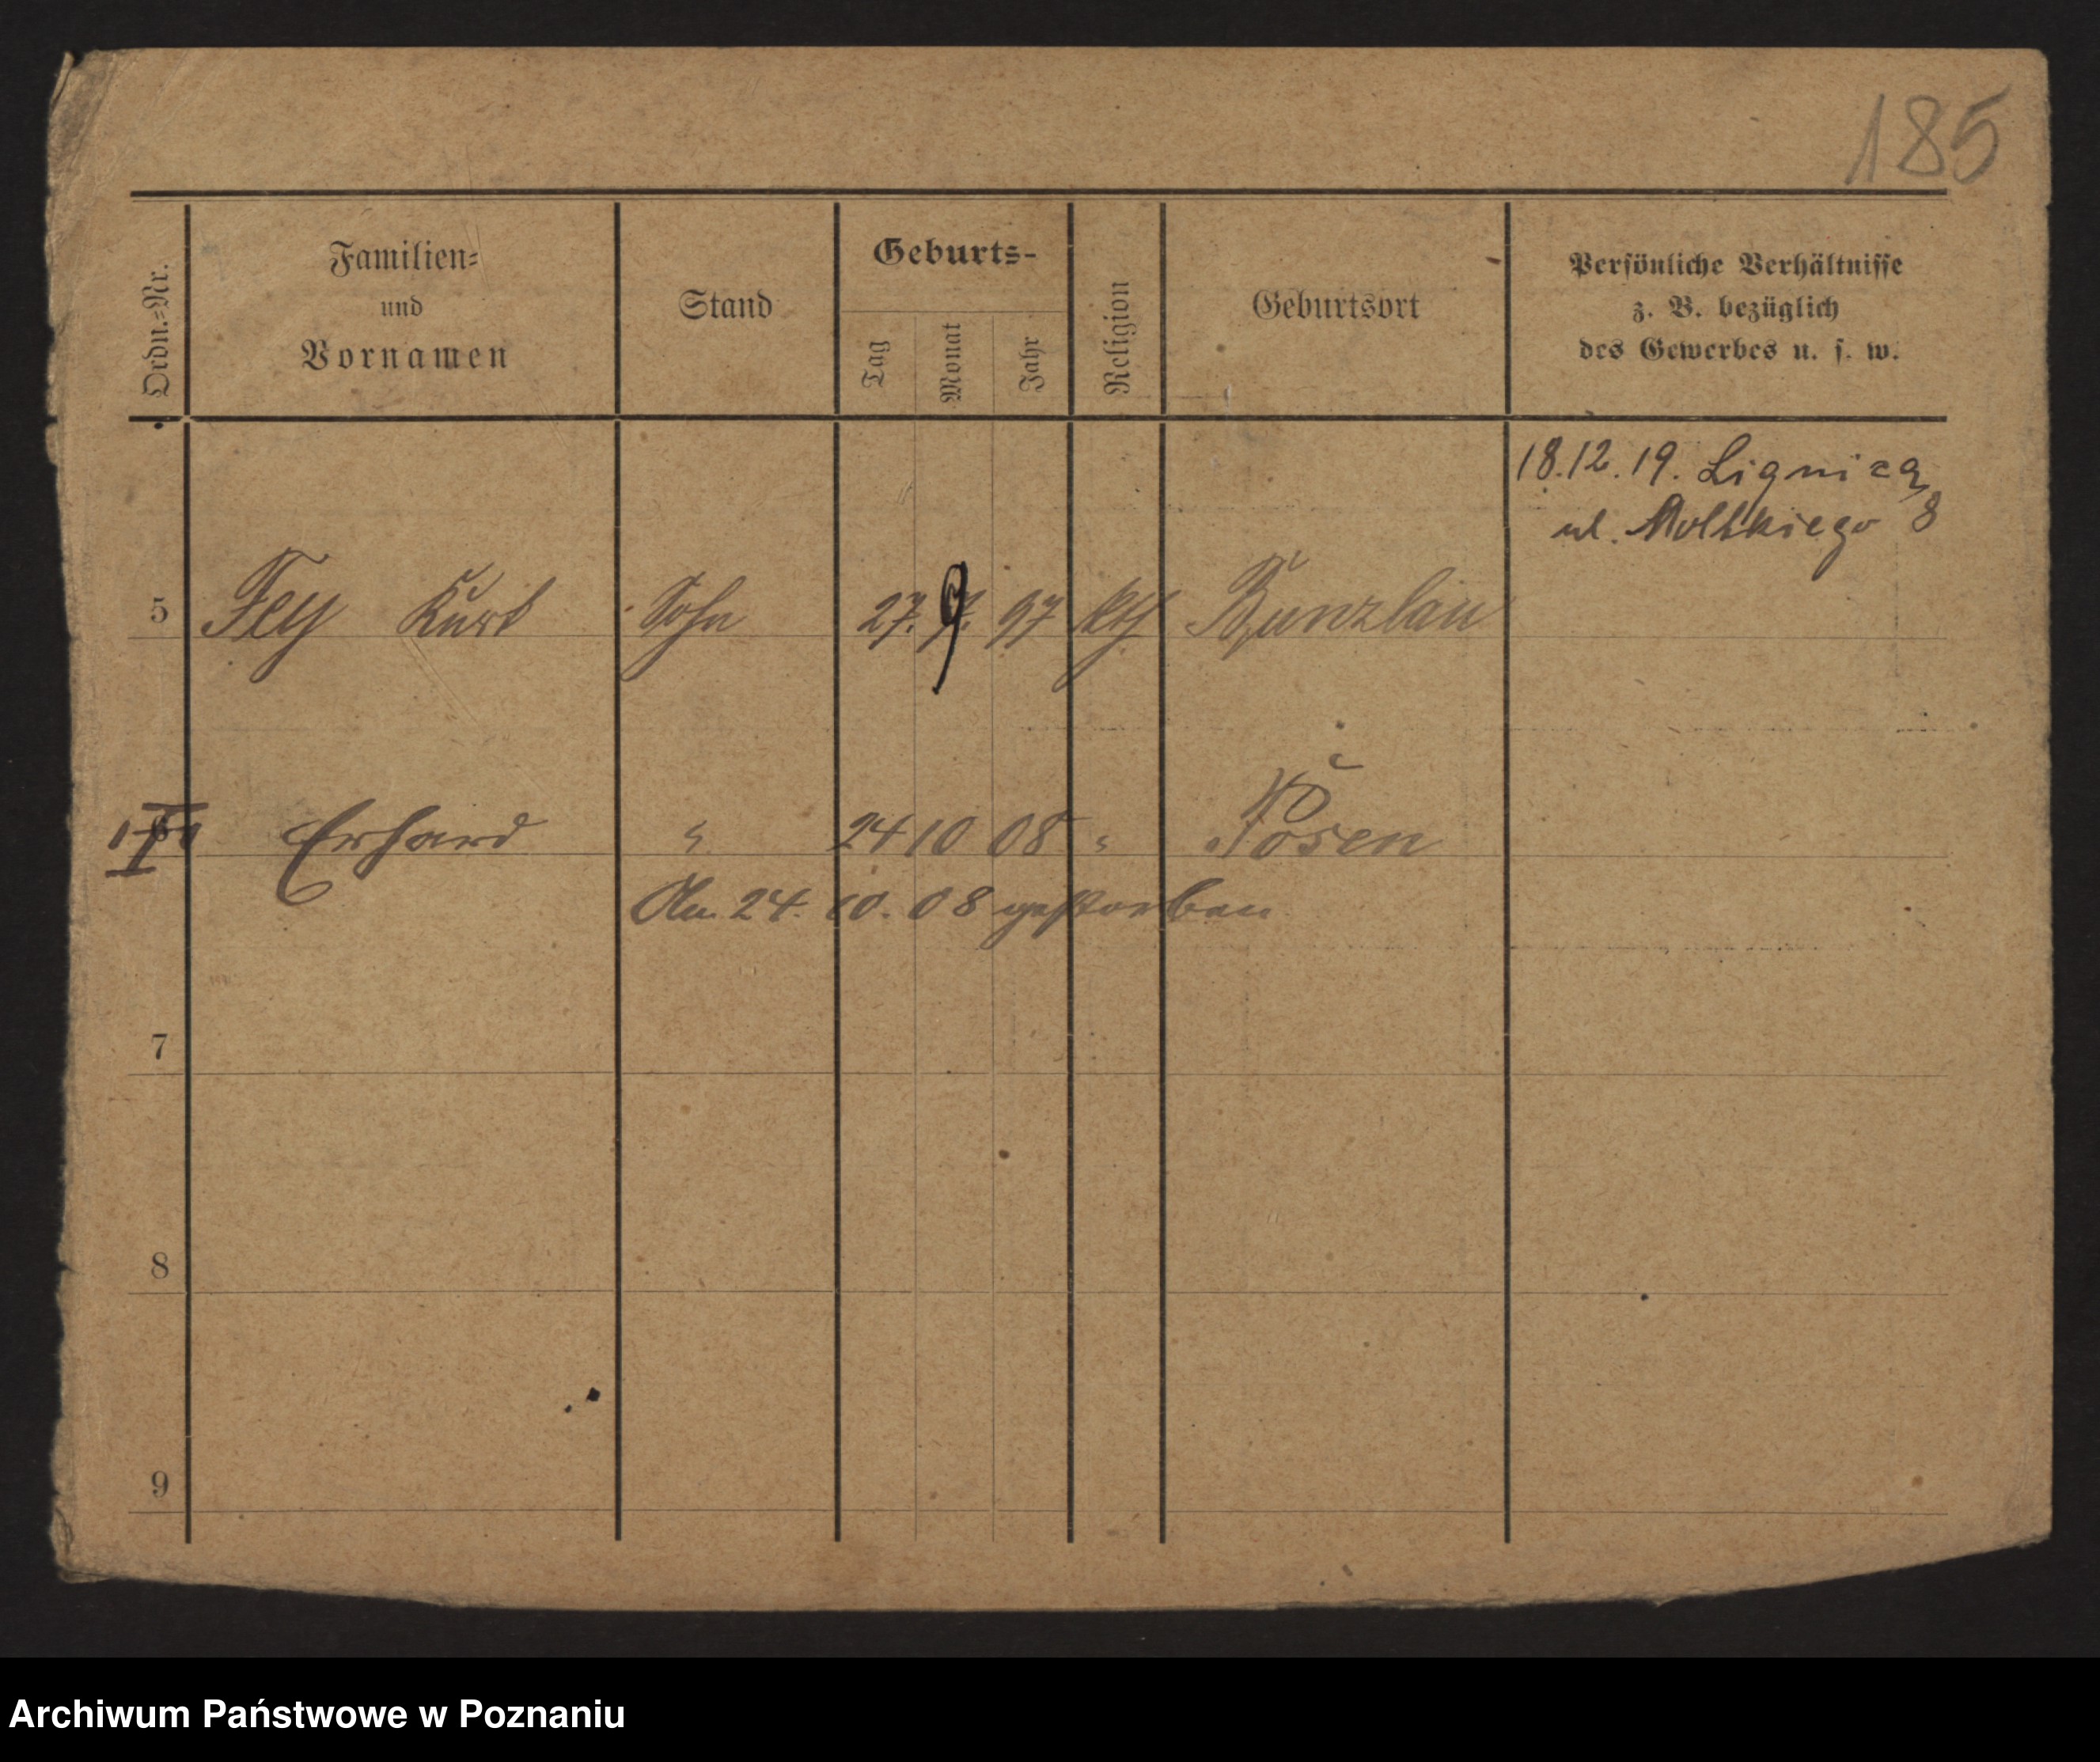 185
Ordn.=Nr.
Familien=
und
Vornamen
Stand
Geburts-
Tag
Monat
Jahr
Religion
Geburtsort
Persönliche Verhältnisse
z. B. bezüglich
des Gewerbes u. s. w.
18.12.19. Lignica
ul. Moltkiego 8
5 Fey Kurt Sohn 27. 9 97 kth Bunzlau
Erhard " 24 10 08 " Posen
Am 24. 10. 08 gestorben
7
8
9
Archiwum Państwowe w Poznaniu